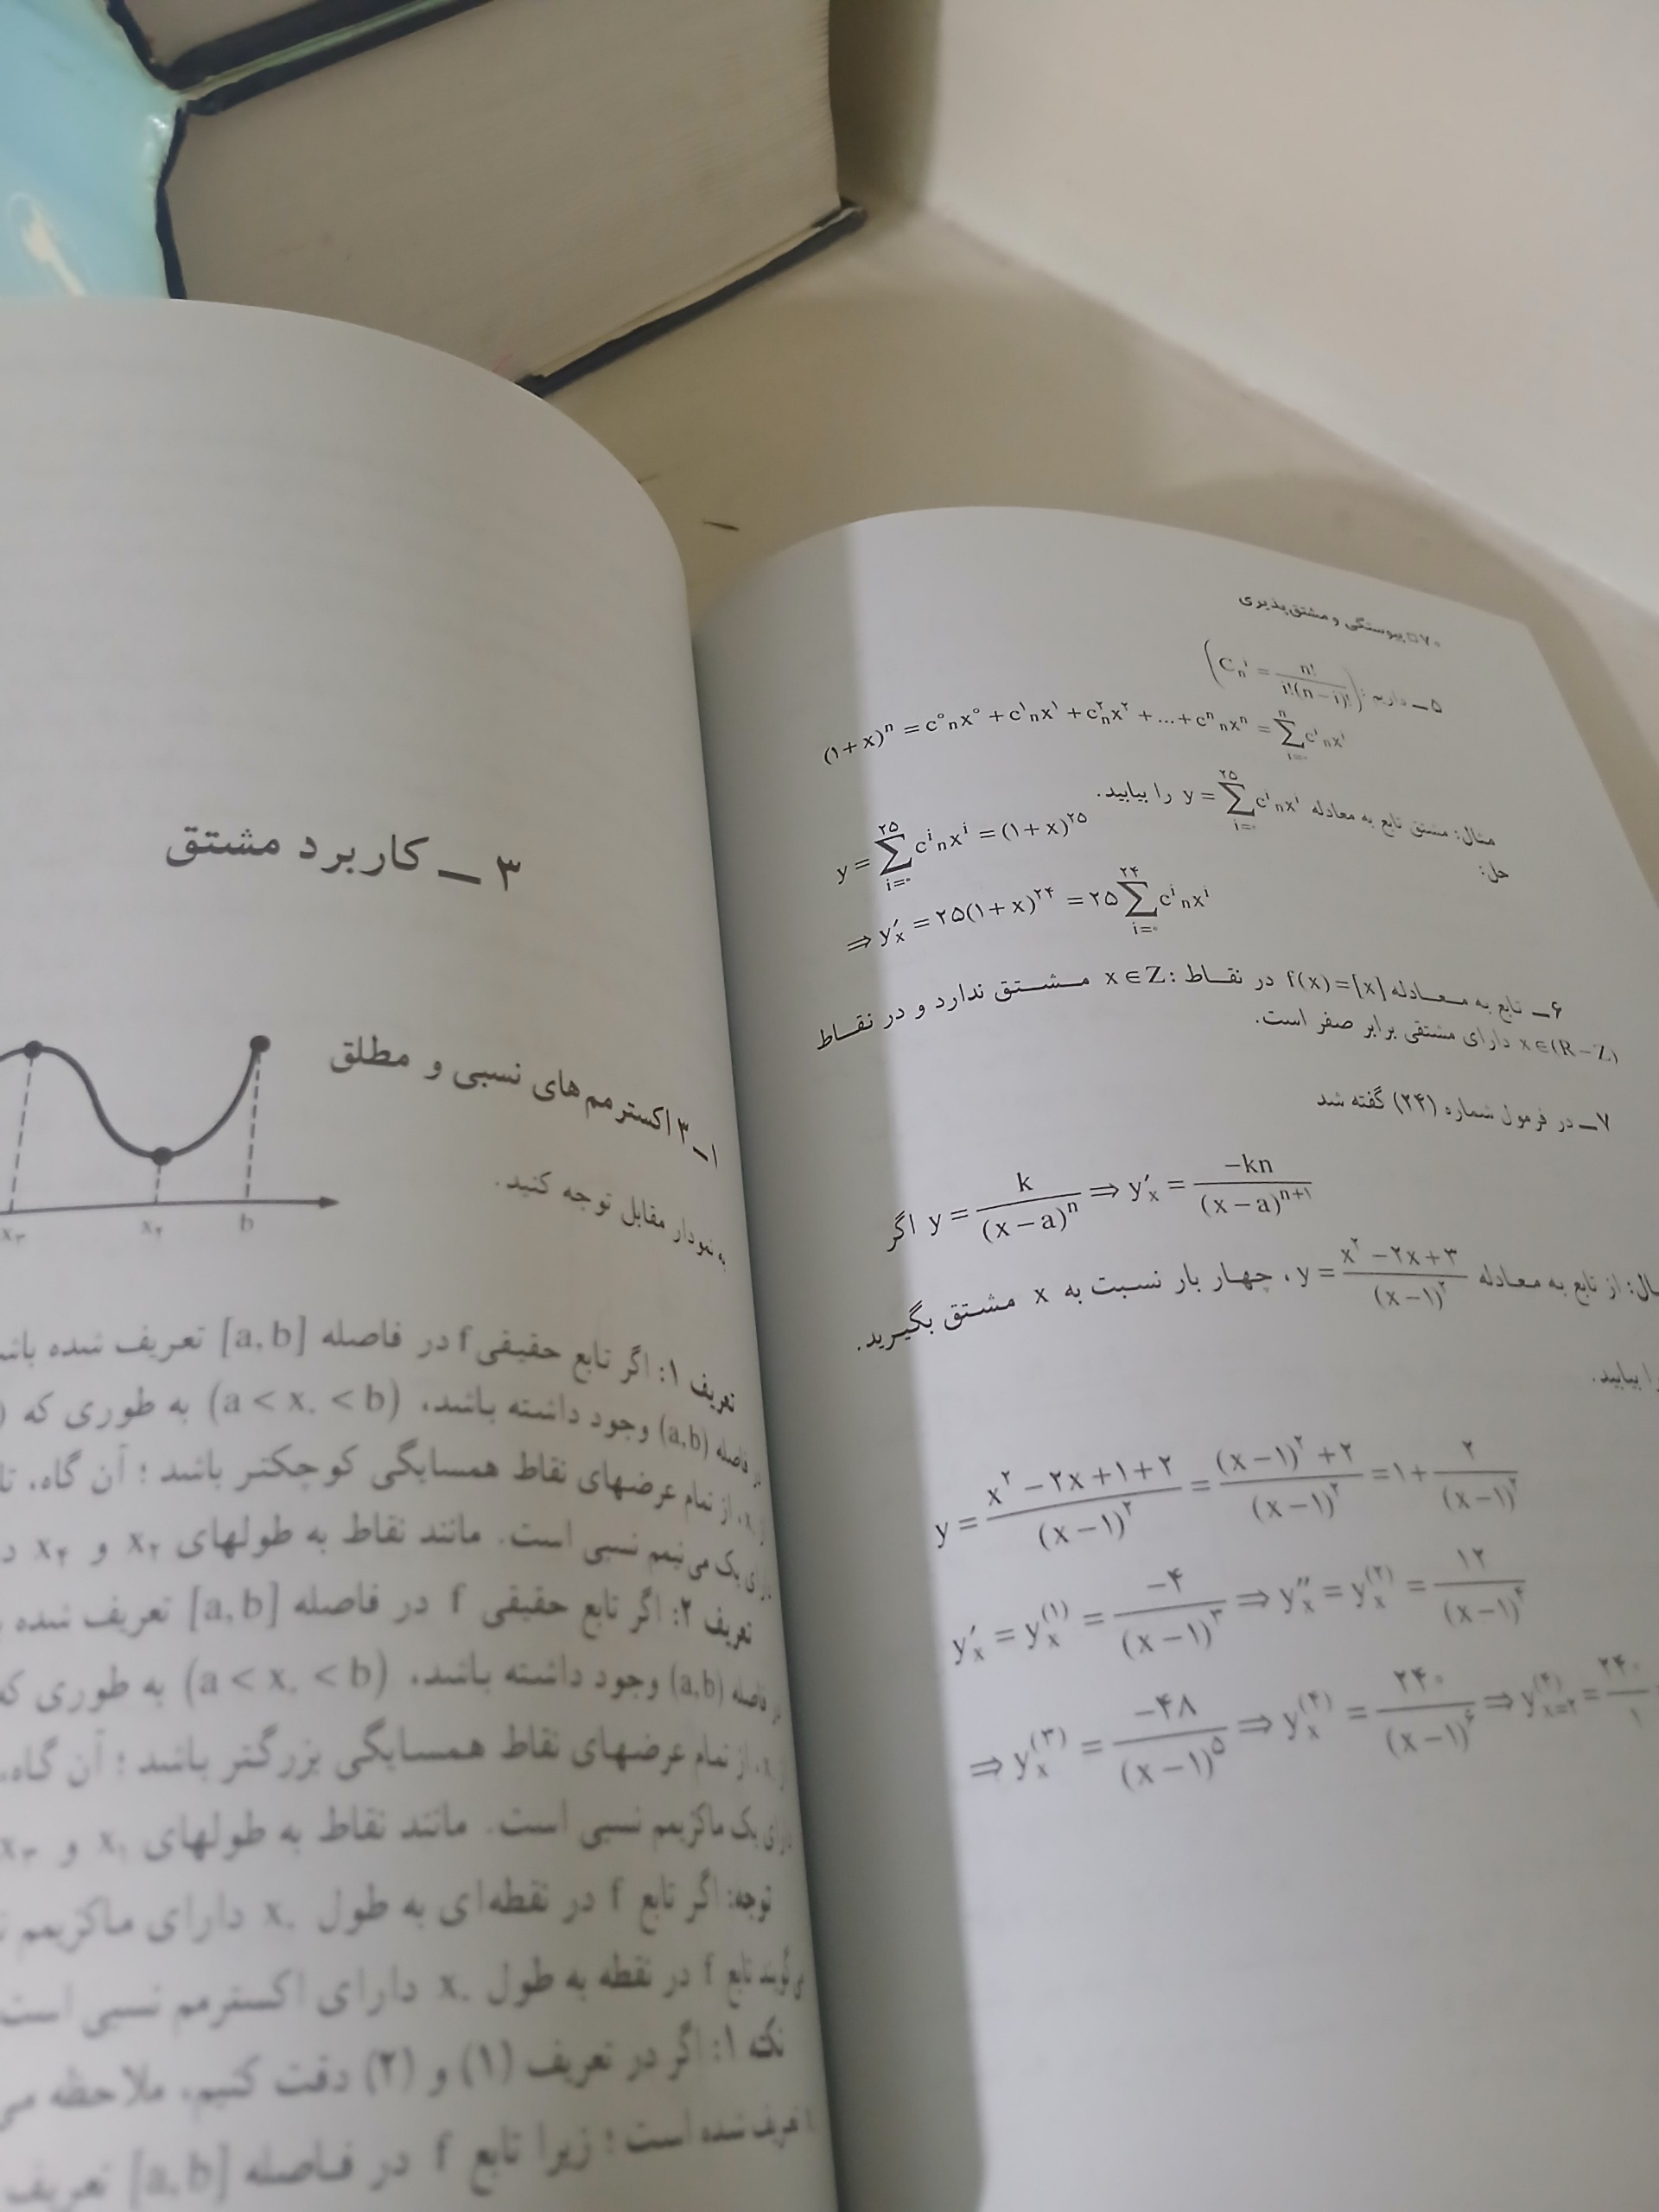 ۷۰ □ پیوستگی و مشتق‌پذیری
۵ـ داریم: (Cₙⁱ = n! / i!(n−i)!)
(۱+x)ⁿ = c°ₙx° + c¹ₙx¹ + c²ₙx² + ... + cⁿₙxⁿ = Σ(i=۰, n) cⁱₙxⁱ
مثال: مشتق تابع به معادله y = Σ(i=۰, ۲۵) cⁱₙxⁱ را بیابید.
حل:
y = Σ(i=۰, ۲۵) cⁱₙxⁱ = (۱+x)^۲۵
⇒ y′ₓ = ۲۵(۱+x)^۲۴ = ۲۵ Σ(i=۰, ۲۴) cⁱₙxⁱ
۶ـ تابع به معادله f(x)=[x] در نقاط x∈Z: مشتق ندارد و در نقاط
x∈(R−Z) دارای مشتقی برابر صفر است.
۷ـ در فرمول شماره (۲۴) گفته شد
اگر y = k / (x−a)^n ⇒ y′ₓ = −kn / (x−a)^(n+۱)
از تابع به معادله y = (x^۲ − ۲x + ۳) / (x−۱)^۲ ، چهار بار نسبت به x مشتق بگیرید.
بیابید.
y = (x^۲ − ۲x + ۱ + ۲) / (x−۱)^۲ = ((x−۱)^۲ + ۲) / (x−۱)^۲ = ۱ + ۲ / (x−۱)^۲
y′ₓ = yₓ^(۱) = −۴ / (x−۱)^۳ ⇒ y″ₓ = yₓ^(۲) = ۱۲ / (x−۱)^۴
⇒ yₓ^(۳) = −۴۸ / (x−۱)^۵ ⇒ yₓ^(۴) = ۲۴۰ / (x−۱)^۶ ⇒ y^(۴)ₓ₌۲ = ۲۴۰ / ۱
۳ ـ کاربرد مشتق
۱ـ۳ اکسترمم‌های نسبی و مطلق
به نمودار مقابل توجه کنید.
x۳ x۴ b
تعریف ۱: اگر تابع حقیقی f در فاصله [a,b] تعریف شده
در فاصله (a,b) وجود داشته باشد، (a < x۰ < b) به طوری که
از تمام عرضهای نقاط همسایگی کوچکتر باشد ؛ آن گاه،
دارای یک می‌نیمم نسبی است. مانند نقاط به طولهای x۲ و x۴
تعریف ۲: اگر تابع حقیقی f در فاصله [a,b] تعریف شده
در فاصله (a,b) وجود داشته باشد، (a < x۰ < b) به طوری که
از تمام عرضهای نقاط همسایگی بزرگتر باشد ؛ آن گاه،
دارای یک ماکزیمم نسبی است. مانند نقاط به طولهای x۱ و x۳
توجه: اگر تابع f در نقطه‌ای به طول x۰ دارای ماکزیمم
می‌گویند تابع f در نقطه به طول x۰ دارای اکسترمم نسبی است
نکته ۱: اگر در تعریف (۱) و (۲) دقت کنیم، ملاحظه
تعریف شده است ؛ زیرا تابع f در فاصله [a,b] تعریف